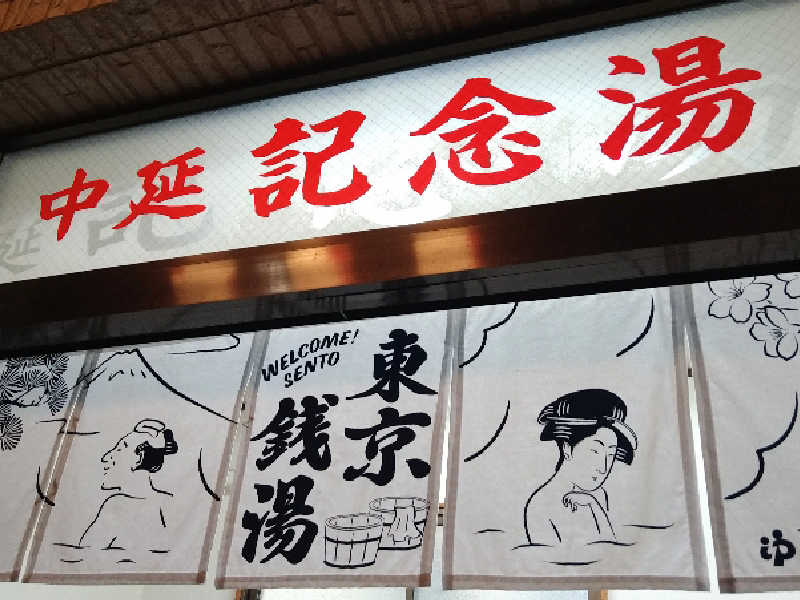 中延 記念湯
WELCOME!
SENTO
東京
銭湯
ゆ